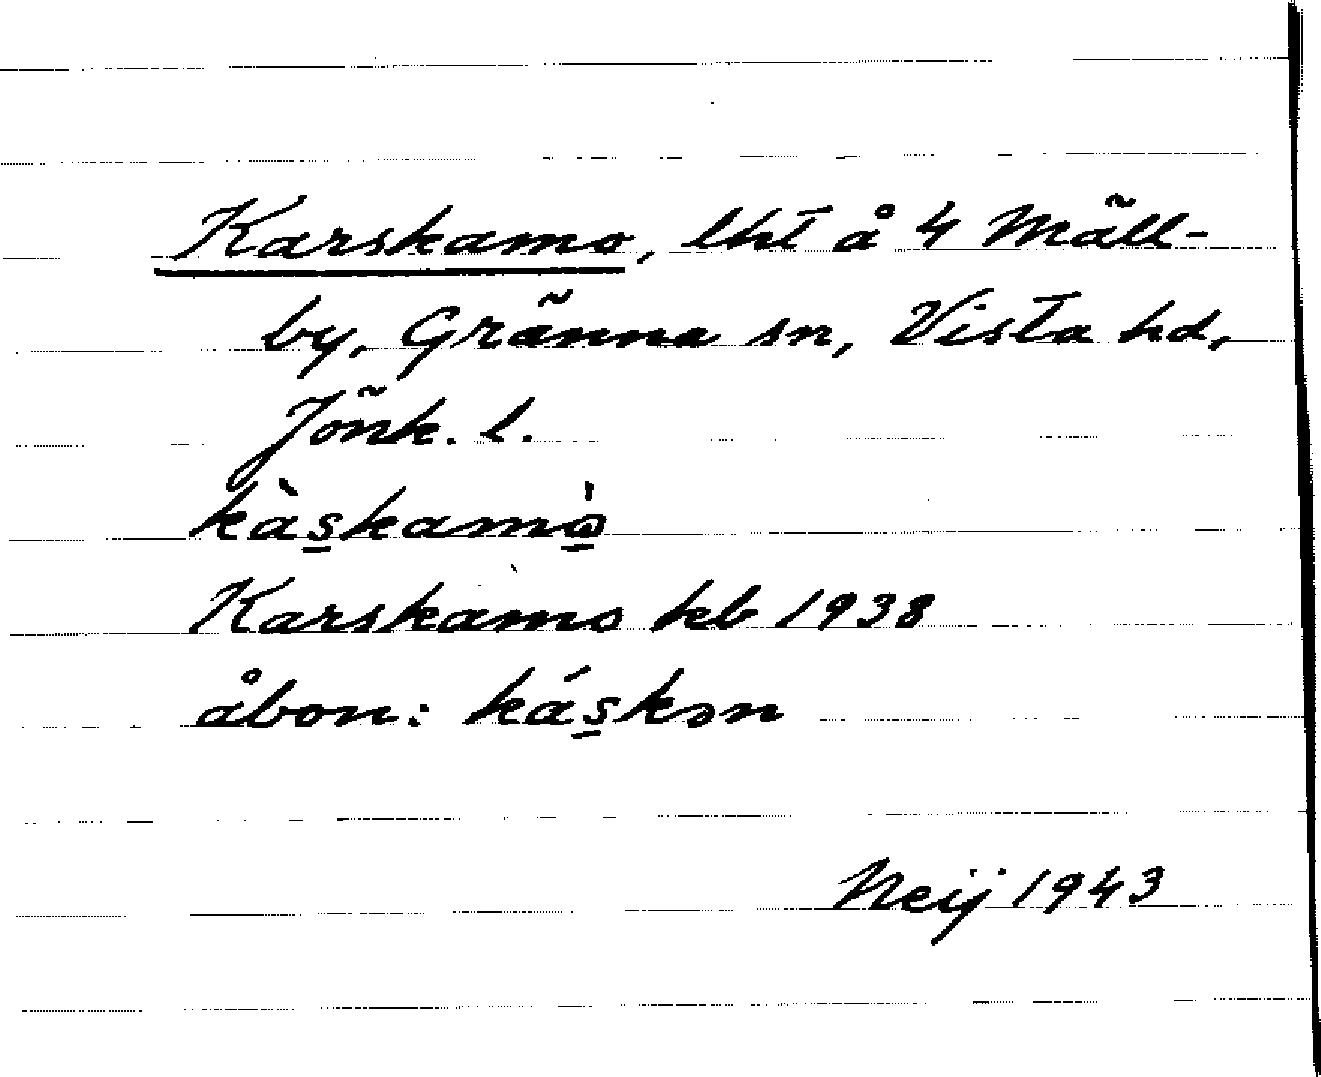 Karskamo, lht å 4 Mäll-
by, Gränna sn, Vista hd,
Jönk. l.
kàs̠kamò̠
Karskamo kb 1938
åbon: kás̠kən
Neij 1943